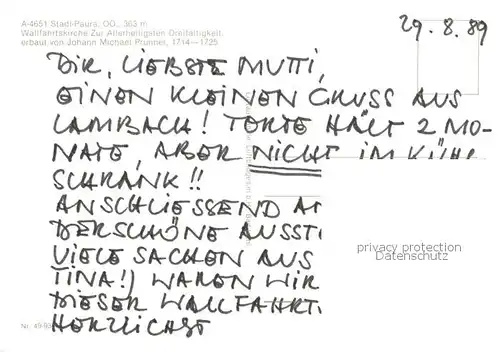 A-4651 Stadl-Paura, OÖ., 363 m
Wallfahrtskirche Zur Allerheiligsten Dreifaltigkeit,
erbaut von Johann Michael Prunner, 1714—1725
29.8.89
DIR, LIEBSTE MUTTI,
EINEN KLEINEN GRUSS AUS
LAMBACH! TORTE HÄLT 2 MO-
NATE, ABER NICHT IM KÜHL
SCHRANK!!
ANSCHLIESSEND
DERSCHÖNE AUSSTE
VIELE SACHEN AUS
TINA!) WAREN WIR
DIESER WALLFAHRT
HERZLICHST
privacy protection
Datenschutz
Nr.